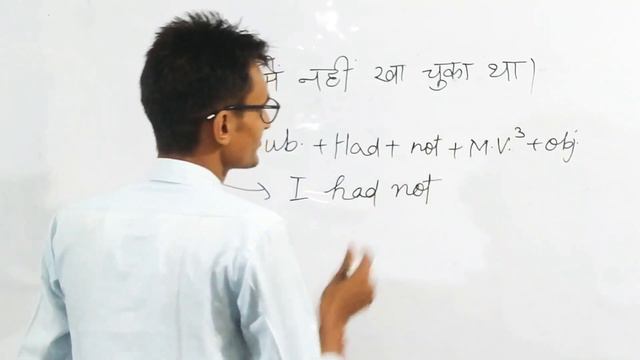 मैं नहीं खा चुका था।
ub. + Had + not + M.V.³ + obj
→ I had not